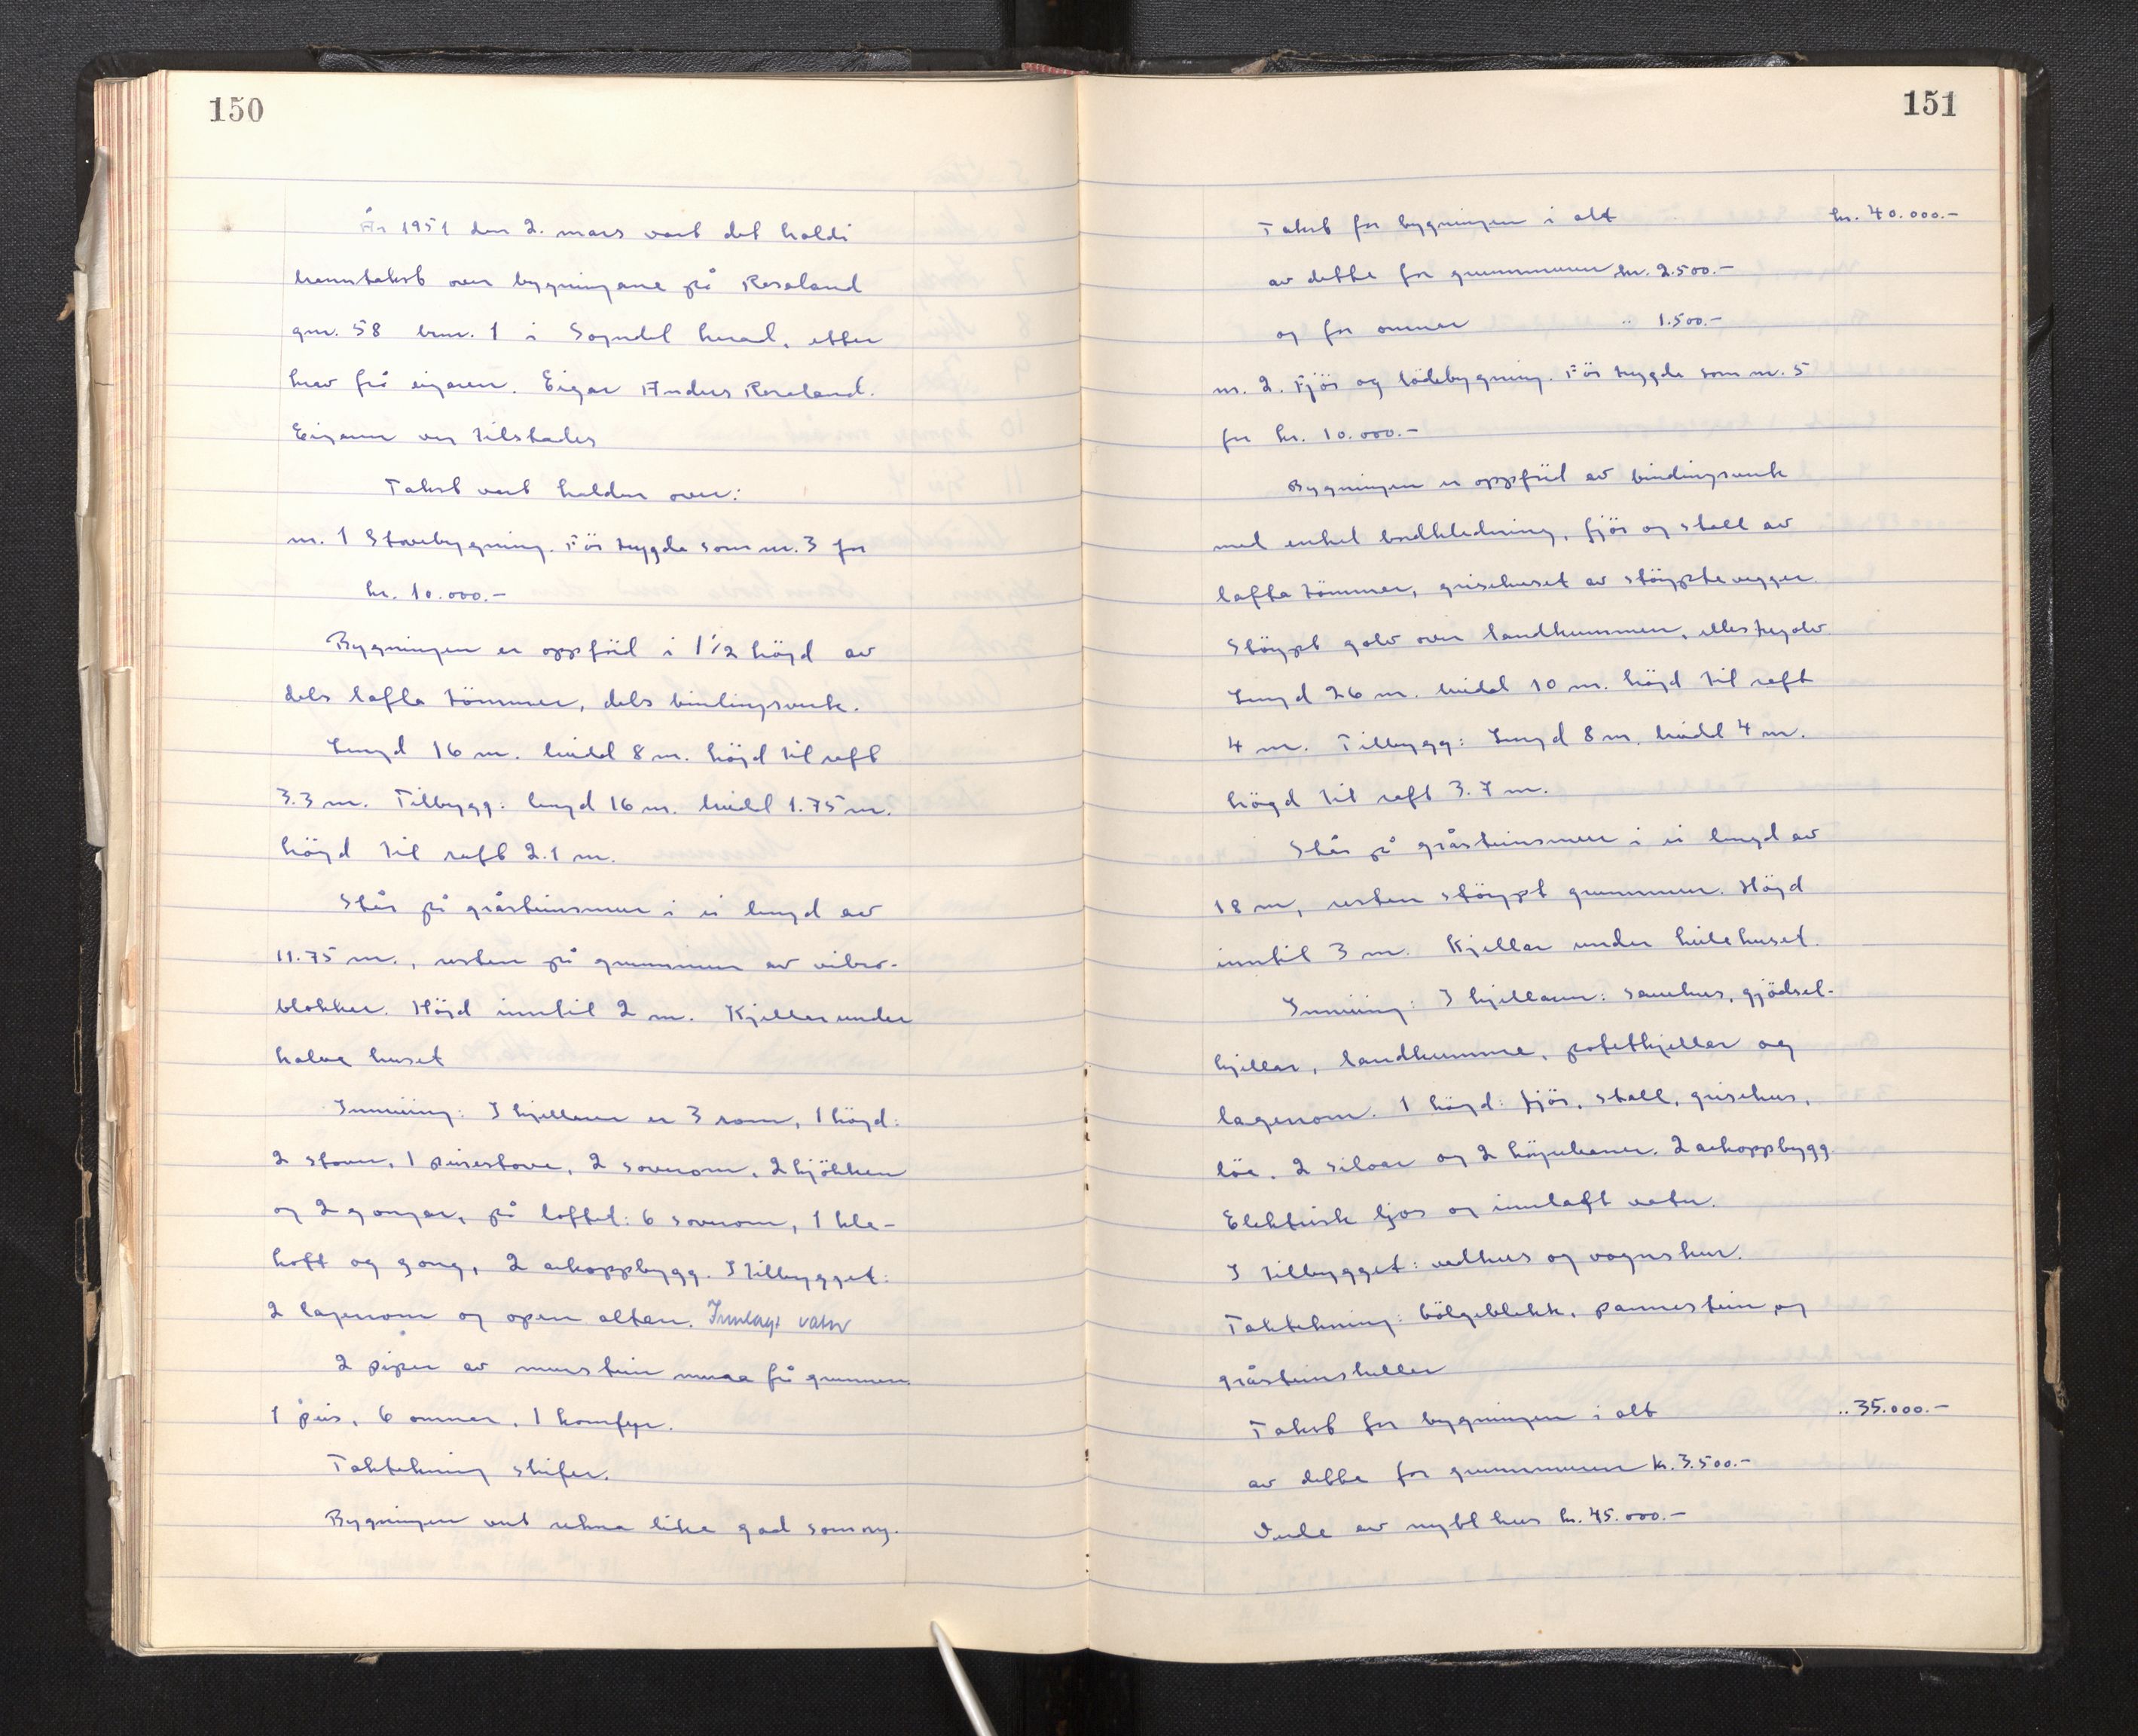 150
År 1951 den 2. mars vart det haldi
branntakst over bygningane på Røsaland
gnr. 58 bnr. 1 i Sogndal herad, etter
krav frå eigaren. Eigar Anders Røsaland.
Eigaren var tilstades
Takst vart halden over:
nr. 1 Stovebygning. Før trygda som nr. 3 for
kr. 10.000.-
Bygningen er oppförd i 1 1/2 högd av
dels lafta tömmer, dels bindingsverk.
Lengd 16 m. breidd 8 m. högd til raft
3.3 m. Tilbygg: lengd 16 m. breidd 1.75 m.
högd til raft 2.1 m.
Står på gråsteinsmur i ei lengd av
11.75 m., resten på grunnmur av vibro-
blokker. Högd inntil 2 m. Kjellar under
halve huset
Innreiing: I kjellaren er 3 rom, 1 högd:
2 stover, 1 peisestove, 2 soverom, 2 kjökken
og 2 gonger, på loftet: 6 soverom, 1 kle-
koft og gong, 2 arkoppbygg. I tilbygget:
2 lagerrom og open altan. Innlagt vatn
2 piper av murstein mura frå grunnen
1 peis, 6 omner, 1 komfyr.
Taktekning skifer.
Bygningen vert rekna like god som ny.
151
Takst for bygningen i alt kr. 40.000.-
av dette for grunnmuren kr. 2.500.-
og for omner " 1.500.-
nr. 2. Fjös og lödebygning. För trygda som nr. 5
for kr. 10.000.-
Bygningen er oppförd av bindingsverk
med enkel bordkledning, fjös og stall av
lafta tömmer, grisehuset av stöypte vegger
Stöypt golv over landkummen, elles tregolv
Lengd 26 m. breidd 10 m. högd til raft
4 m. Tilbygg: Lengd 8 m. breidd 4 m.
högd til raft 3.7 m.
Står på gråsteinsmur i ei lengd av
18 m, resten stöypt grunnmur. Högd
inntil 3 m. Kjellar under heile huset.
Innreiing: I kjellaren: sauehus, gjödsel-
kjellar, landkumme, potetkjellar og
lagerrom. 1 högd: fjös, stall, grisehus,
löe. 2 siloar og 2 höysvaner. 2 arkoppbygg.
Elektrisk ljos og innlagt vatn.
I tilbygget: vedhus og vognskur.
Taktekning: bölgeblekk, pannestein og
gråsteinsheller
Takst for bygningen i alt .. 35.000.-
av dette for grunnmuren kr. 3.500.-
Verde av nytt hus kr. 45.000.-